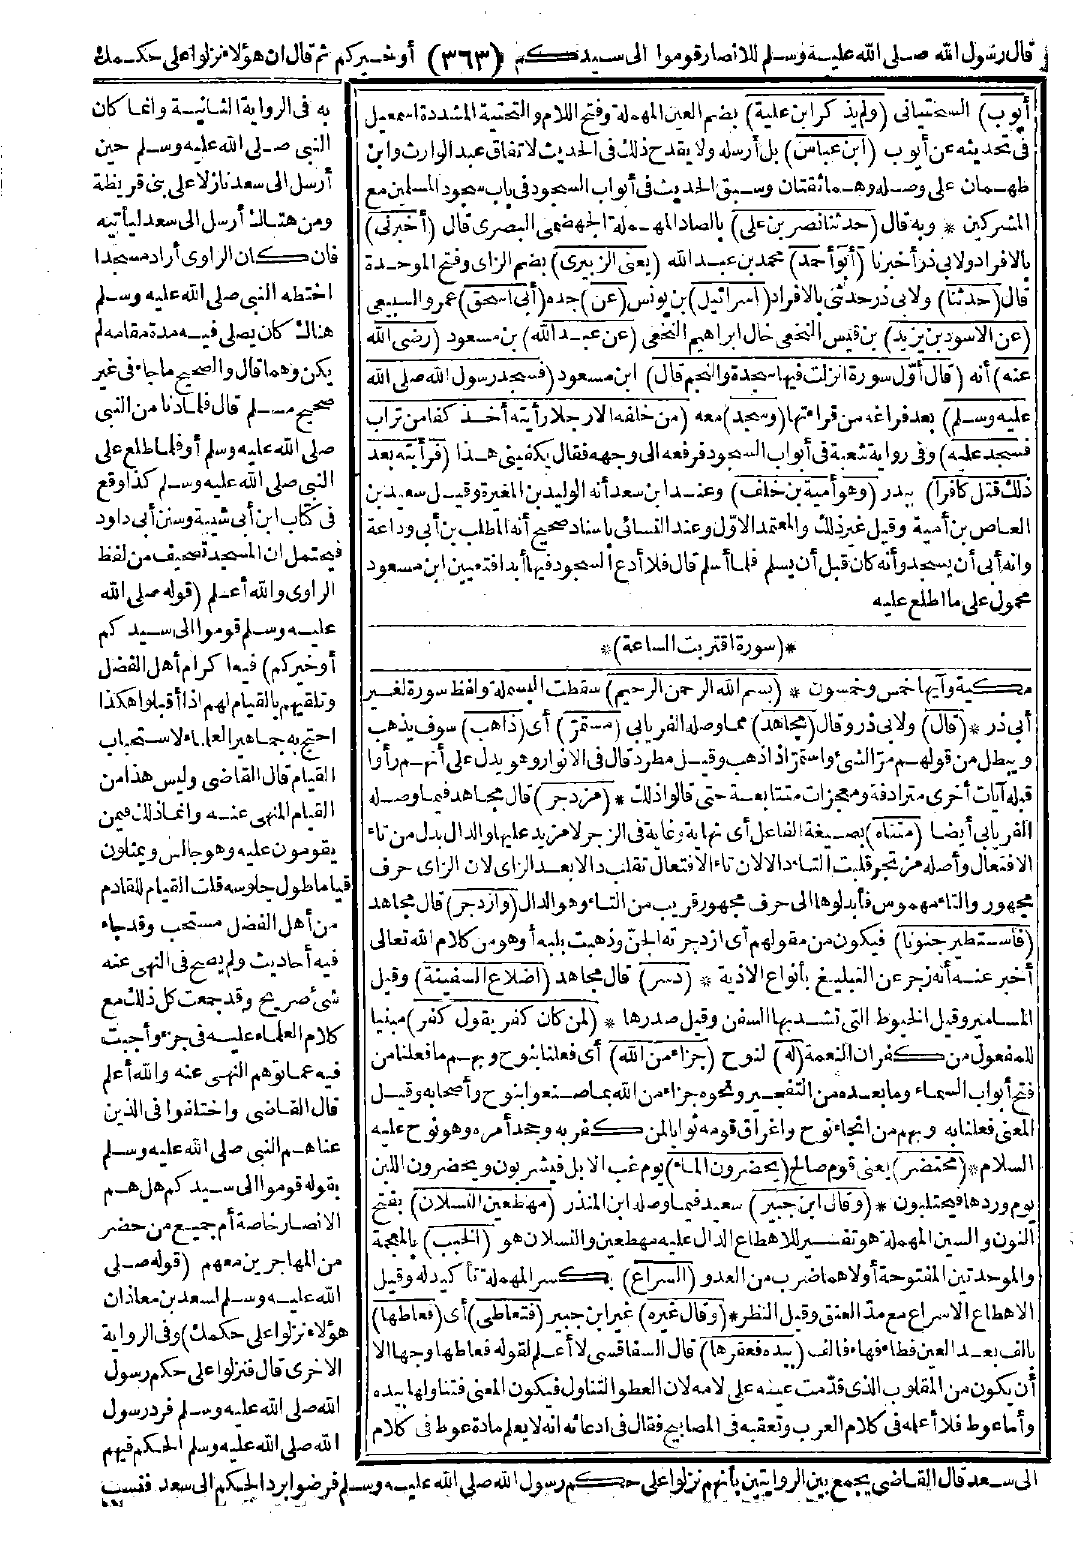 قال رسول الله صلى الله عليه وسلم للانصار قوموا الى سيدكم (٣٦٣) أو خيركم ثم قال ان هؤلاء نزلوا على حكمك
أيوب) السختياني (ولم يذكر ابن علية) بضم العين المهملة وفتح اللام والتحتية المشددة اسمعيل
في تحديثه عن أيوب (ابن عباس) بل أرسله ولا يقدح ذلك في الحديث لاتفاق عبد الوارث وابن
طهمان على وصله وهما ثقتان وسبق الحديث في أبواب السجود في باب سجود المسلمين مع
المشركين * وبه قال (حدثنا نصر بن علي) بالصاد المهملة الجهضمي البصري قال (أخبرني)
بالافراد ولابي ذر أخبرنا (أبو أحمد) محمد بن عبد الله (يعني الزبيري) بضم الزاى وفتح الموحدة
قال (حدثنا) ولابي ذر حدثني بالافراد (اسرائيل) بن يونس (عن) جده (أبي اسحق) عمرو السبيعي
(عن الاسود بن يزيد) بن قيس النخعي خال ابراهيم النخعي (عن عبد الله) بن مسعود (رضي الله
عنه) أنه (قال أول سورة انزلت فيها سجدة والنجم قال) ابن مسعود (فسجد رسول الله صلى الله
عليه وسلم) بعد فراغه من قراءتها (وسجد) معه (من خلفه الا رجلا رأيته أخذ كفا من تراب
فسجد عليه) وفي رواية شعبة في أبواب السجود فرفعه الى وجهه فقال يكفيني هذا (فرأيته بعد
ذلك قتل كافرا) ببدر (وهو أمية بن خلف) وعند ابن سعد أنه الوليد بن المغيرة وقيل سعيد بن
العاص بن أمية وقيل غير ذلك والمعتمد الاول وعند النسائي باسناد صحيح أنه المطلب بن أبي وداعة
وانه أبى أن يسجد وأنه كان قبل أن يسلم فلما أسلم قال فلا أدع السجود فيها أبدا فتعيين ابن مسعود
محمول على ما اطلع عليه
*(سورة اقتربت الساعة)*
مكية وآيها خمس وخمسون * (بسم الله الرحمن الرحيم) سقطت البسملة ولفظ سورة لغير
أبي ذر * (قال) ولابي ذر وقال (مجاهد) مما وصله الفريابي (مستمر) أى (ذاهب) سوف يذهب
ويبطل من قولهم مر الشئ واستمر اذا ذهب وقيل مطرد قال في الانوار وهو يدل على أنهم رأوا
قبله آيات أخرى مترادفة ومعجزات متتابعة حتى قالوا ذلك * (مزدجر) قال مجاهد فيما وصله
الفريابي أيضا (متناه) بصيغة الفاعل أى نهاية وغاية في الزجر لا مزيد عليها والدال بدل من تاء
الافتعال وأصله مزتجر قلبت التاء دالا لان تاء الافتعال تقلب دالا بعد الزاى لان الزاى حرف
مجهور والتاء مهموس فأبدلوها الى حرف مجهور قريب من التاء وهو الدال (وازدجر) قال مجاهد
(فاستطير جنونا) فيكون من مقولهم أى ازدجرته الجن وذهبت بلبه أو هو من كلام الله تعالى
أخبر عنه أنه زجر عن التبليغ بأنواع الاذية * (دسر) قال مجاهد (اضلاع السفينة) وقيل
المسامير وقيل الخيوط التي تشد بها السفن وقيل صدرها * (لمن كان كفر يقول كفر) مبنيا
للمفعول من كفران النعمة (له) لنوح (جزاء من الله) أى فعلنا بنوح وبهم ما فعلنا من
فتح أبواب السماء وما بعده من التفجير ونحوه جزاء من الله بما صنعوا بنوح وأصحابه وقيل
المعنى فعلنا به وبهم من انجاء نوح واغراق قومه ثوابا لمن كفر به وجحد أمره وهو نوح عليه
السلام * (محتضر) يعني قوم صالح (يحضرون الماء) يوم غب الابل فيشربون ويحضرون اللبن
يوم وردها فيحتلبون * (وقال ابن جبير) سعيد فيما وصله ابن المنذر (مهطعين النسلان) بفتح
النون والسين المهملة هو تفسير للاهطاع الدال عليه مهطعين والنسلان هو (الخبب) بالمعجمة
والموحدتين المفتوحة أولاهما ضرب من العدو (السراع) بكسر المهملة تأكيد له وقيل
الاهطاع الاسراع مع مد العنق وقيل النظر * (وقال غيره) غير ابن جبير (فتعاطى) أى (فعاطها)
بالف بعد العين فطاء فهاء فالف (بيده فعقرها) قال السفاقسي لا أعلم لقوله فعاطها وجها الا
أن يكون من المقلوب الذي قدمت عينه على لامه لان العطو التناول فيكون المعنى فتناولها بيده
وأما عوط فلا أعلمه في كلام العرب وتعقبه في المصابيح فقال في ادعائه انه لا يعلم مادة عوط في كلام
به في الرواية الثانية وانما كان
النبي صلى الله عليه وسلم حين
أرسل الى سعد نازلا على بني قريظة
ومن هناك أرسل الى سعد ليأتيه
فان كان الراوى أراد مسجدا
اختطه النبي صلى الله عليه وسلم
هناك كان يصلي فيه مدة مقامه لم
يكن وهما قال والصحيح ما جاء في غير
صحيح مسلم قال فلما دنا من النبي
صلى الله عليه وسلم أو فلما طلع على
النبي صلى الله عليه وسلم كذا وقع
في كتاب ابن أبي شيبة وسنن أبي داود
فيحتمل ان المسجد تصحيف من لفظ
الراوى والله أعلم (قوله صلى الله
عليه وسلم قوموا الى سيدكم
أو خيركم) فيه اكرام أهل الفضل
وتلقيهم بالقيام لهم اذا أقبلوا هكذا
احتج به جماهير العلماء لاستحباب
القيام قال القاضي وليس هذا من
القيام المنهى عنه وانما ذلك فيمن
يقومون عليه وهو جالس ويمثلون
قياما طول جلوسه قلت القيام للقادم
من أهل الفضل مستحب وقد جاء
فيه أحاديث ولم يصح في النهى عنه
شئ صريح وقد جمعت كل ذلك مع
كلام العلماء عليه في جزء وأجبت
فيه عما توهم النهى عنه والله أعلم
قال القاضي واختلفوا في الذين
عناهم النبي صلى الله عليه وسلم
بقوله قوموا الى سيدكم هل هم
الانصار خاصة أم جميع من حضر
من المهاجرين معهم (قوله صلى
الله عليه وسلم لسعد بن معاذ ان
هؤلاء نزلوا على حكمك) وفي الرواية
الاخرى قال فنزلوا على حكم رسول
الله صلى الله عليه وسلم فرد رسول
الله صلى الله عليه وسلم الحكم فيهم
الى سعد قال القاضي يجمع بين الروايتين بأنهم نزلوا على حكم رسول الله صلى الله عليه وسلم فرضوا برد الحكم الى سعد فنسب